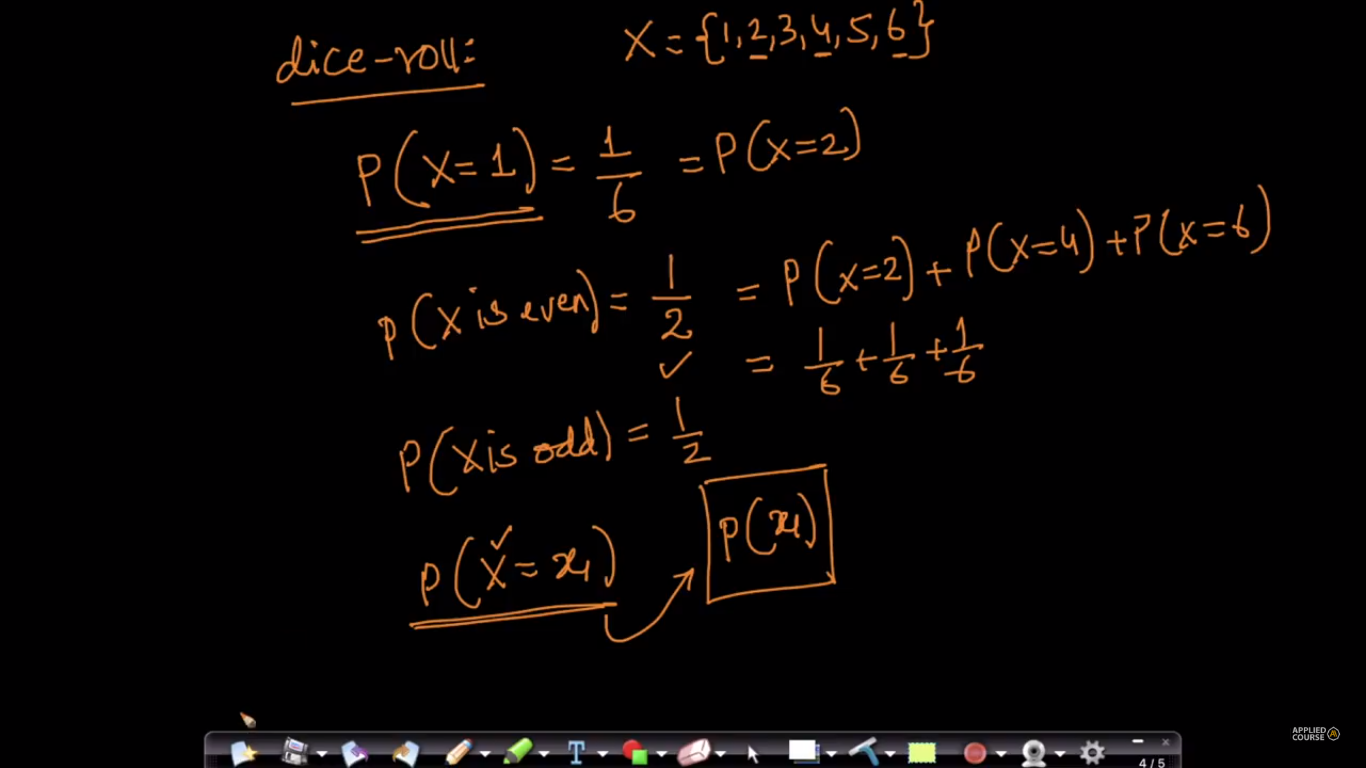 dice-roll: X = {1, 2, 3, 4, 5, 6}
P(X=1) = 1/6 = P(X=2)
P(X is even) = 1/2 = P(X=2) + P(X=4) + P(X=6)
✓ = 1/6 + 1/6 + 1/6
P(X is odd) = 1/2
P(X = x₁) P(x₁)
APPLIED
COURSE
T
4 / 5